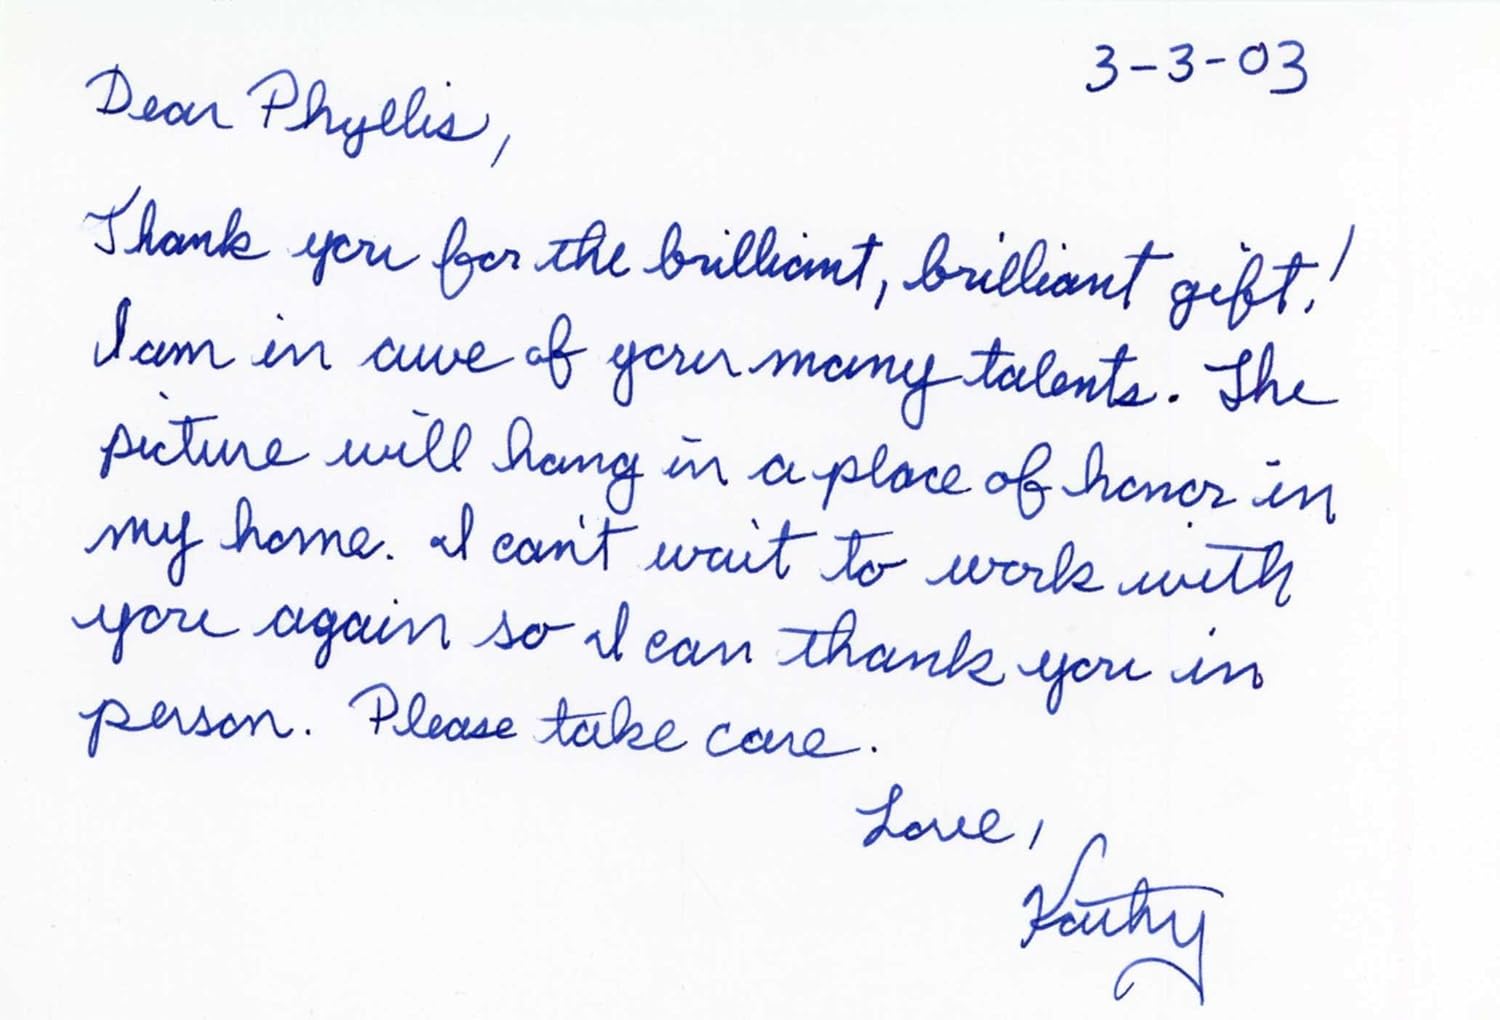 3-3-03
Dear Phyllis,
Thank you for the brilliant, brilliant gift!
I am in awe of your many talents. The
picture will hang in a place of honor in
my home. I can't wait to work with
you again so I can thank you in
person. Please take care.
Love,
Kathy